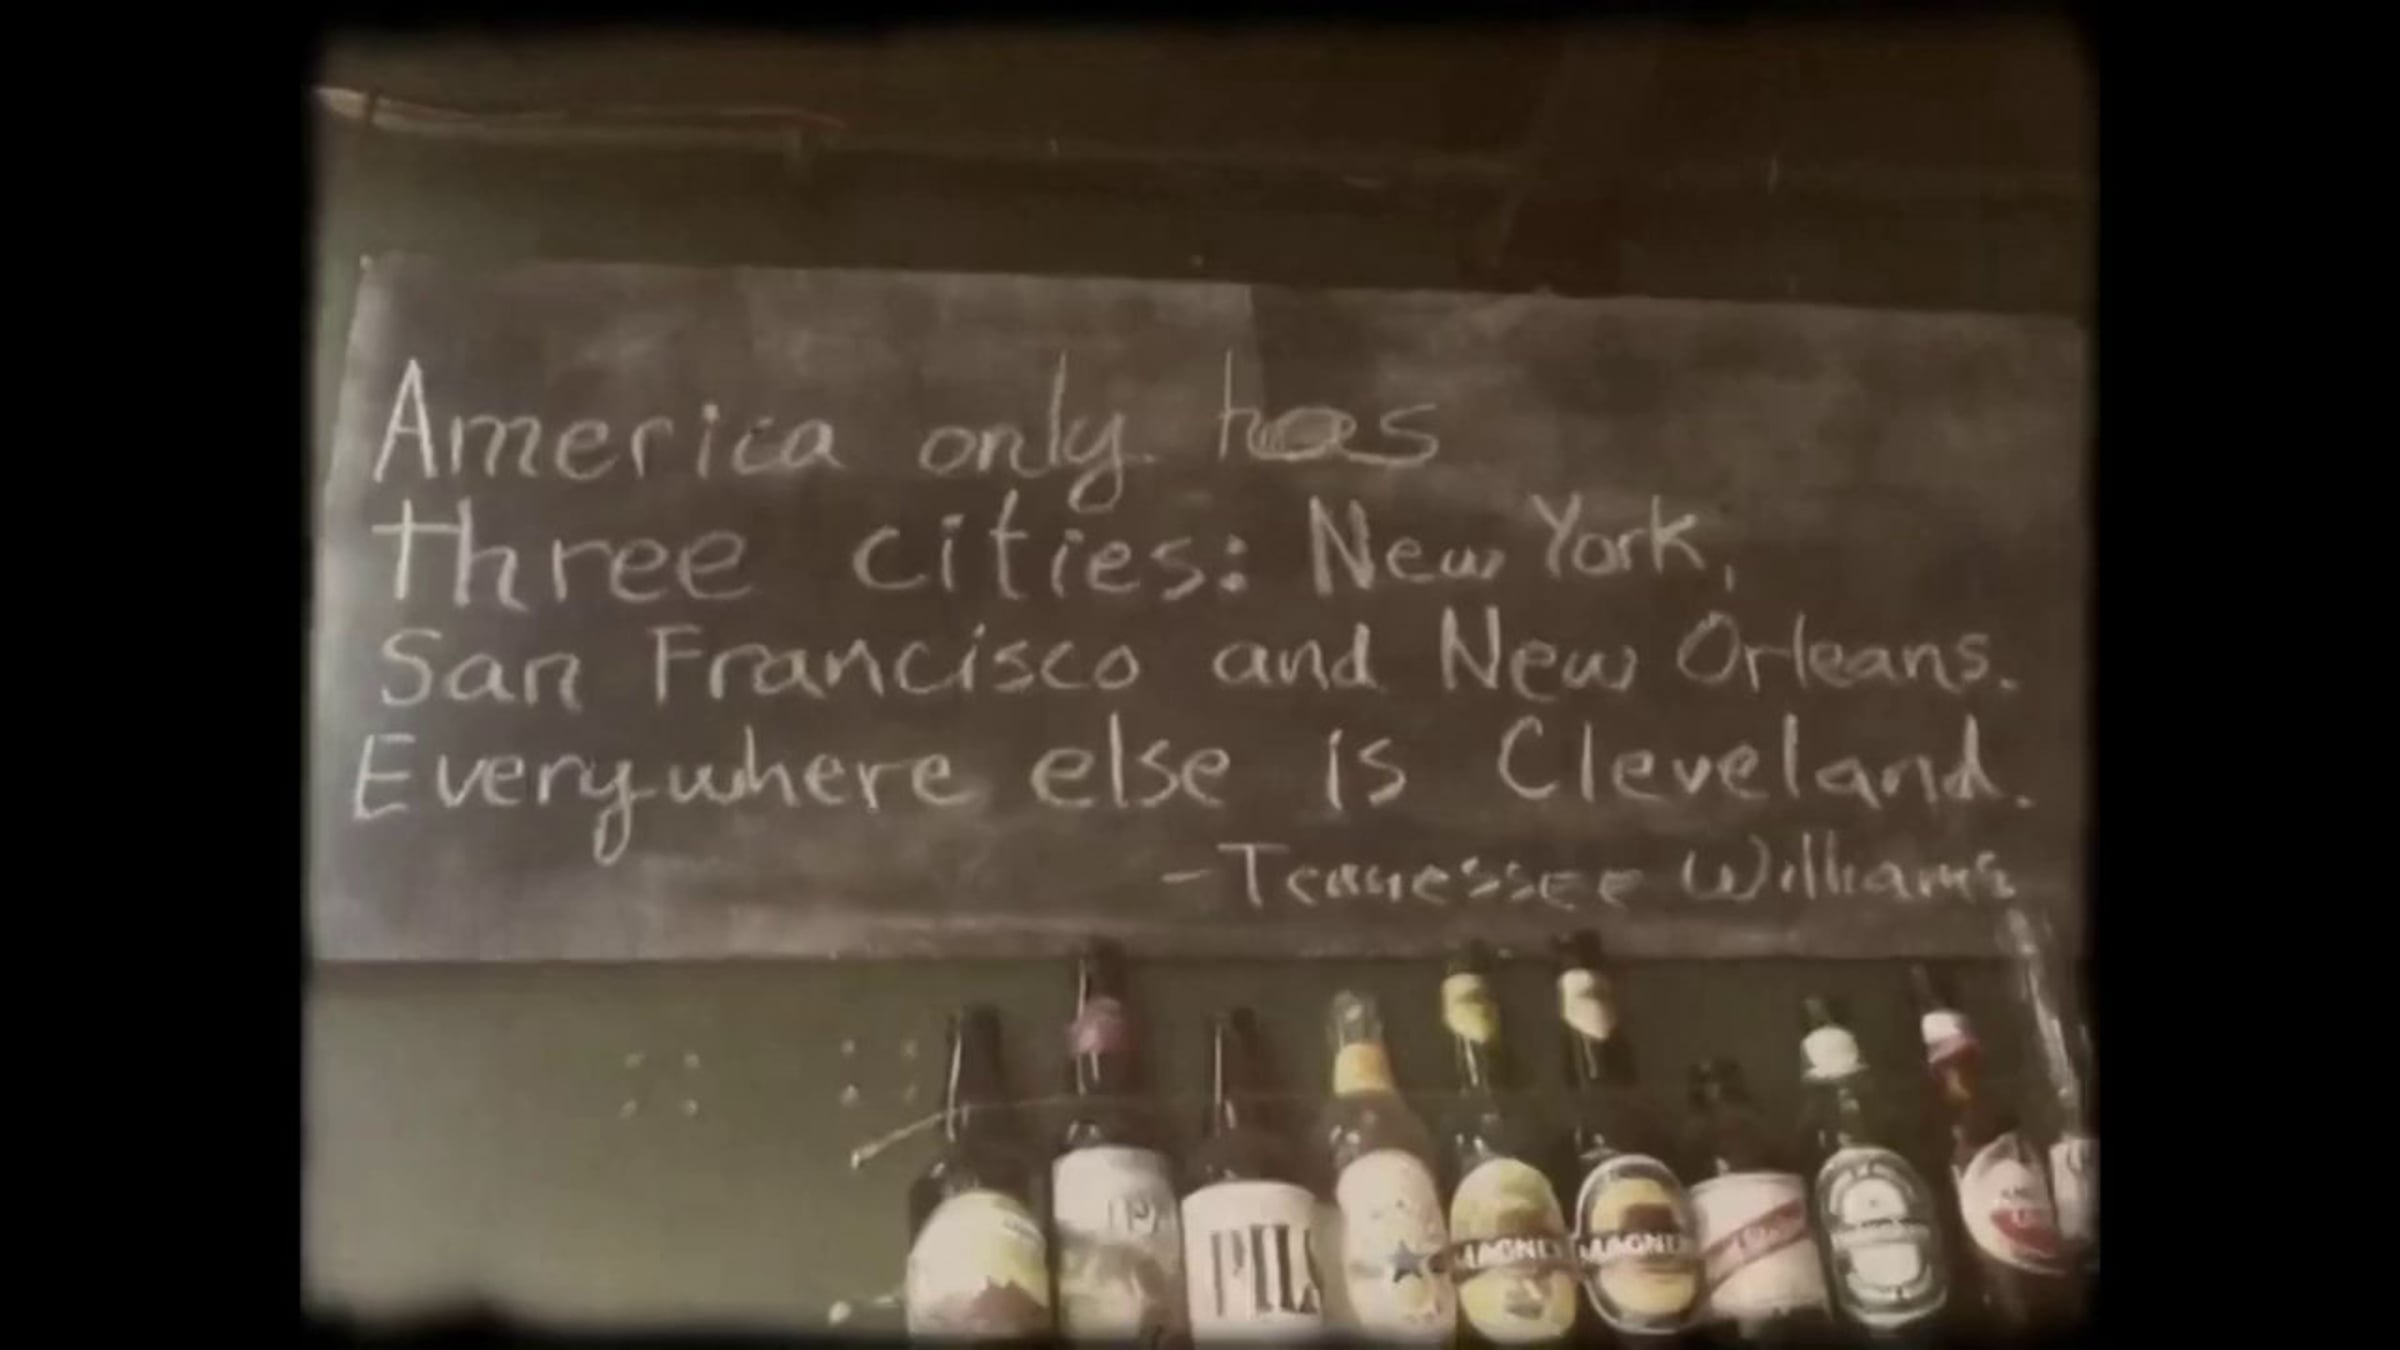 America only has
three cities: New York,
San Francisco and New Orleans.
Everywhere else is Cleveland.
-Tennessee Williams
PILS
MAGNE
MAGNE
Heineken